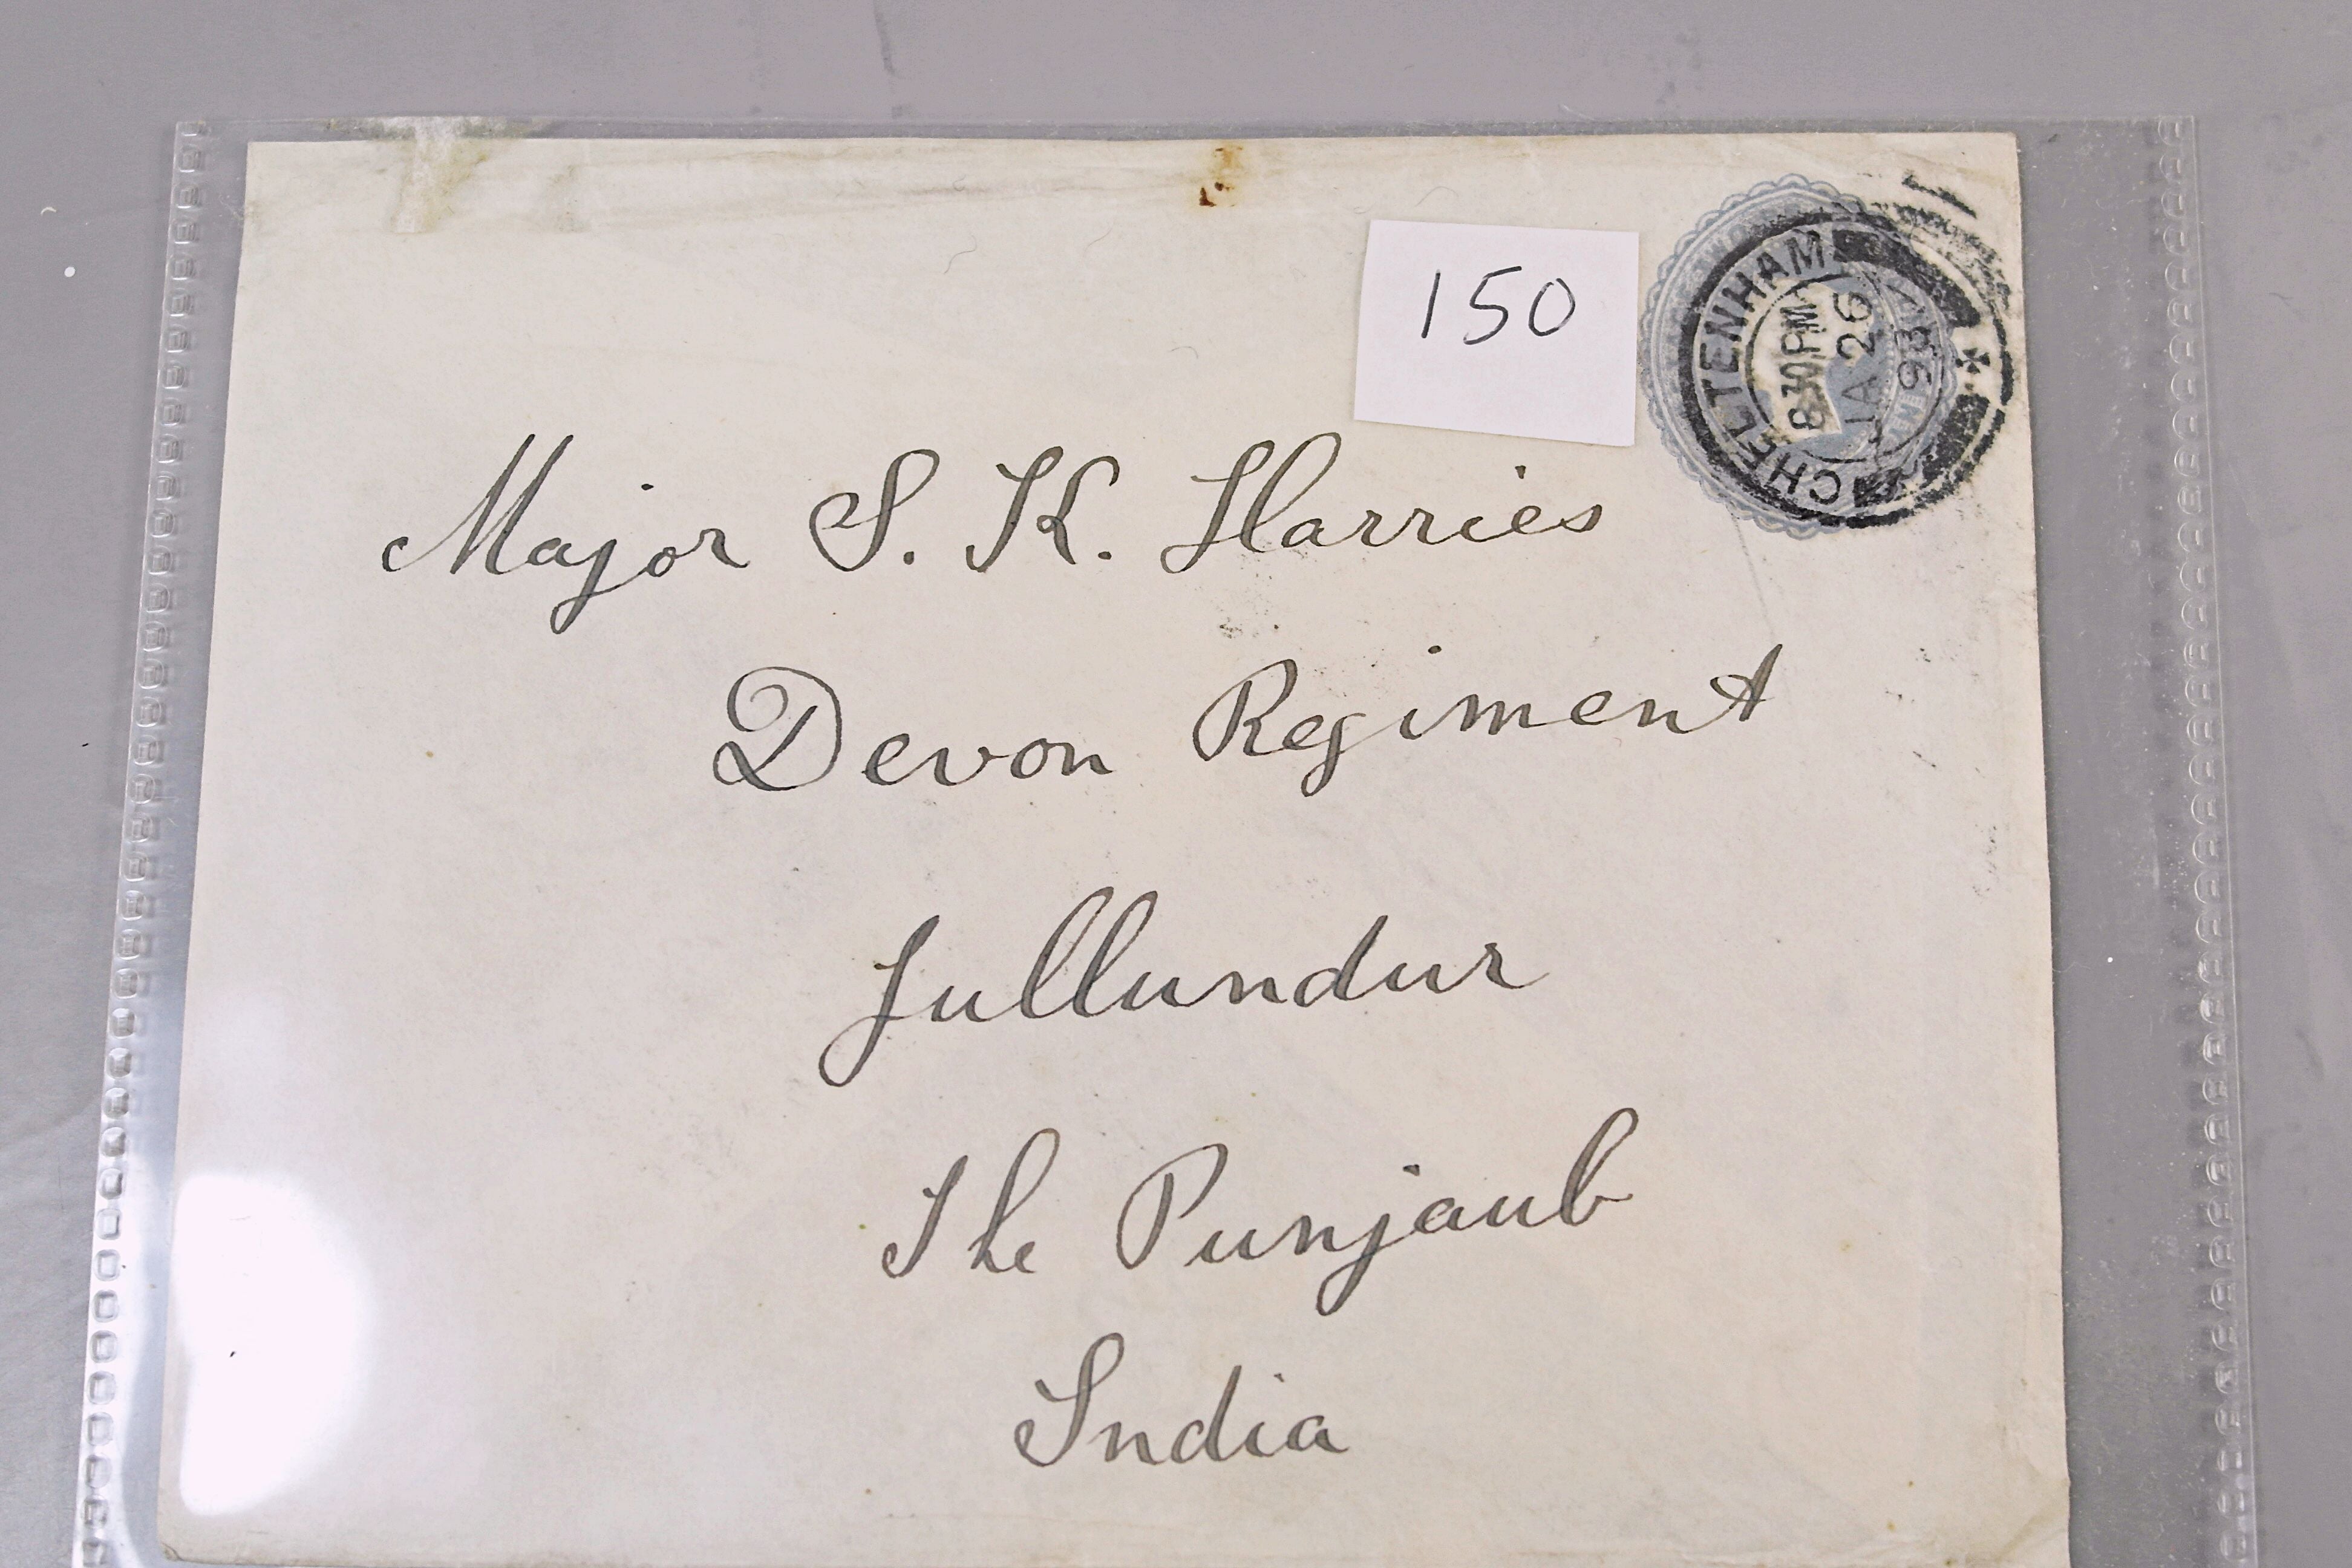 150
CHELTENHAM
8.30PM
JA 26
98
Major S. K. Harries
Devon Regiment
Jullundur
The Punjaub
India